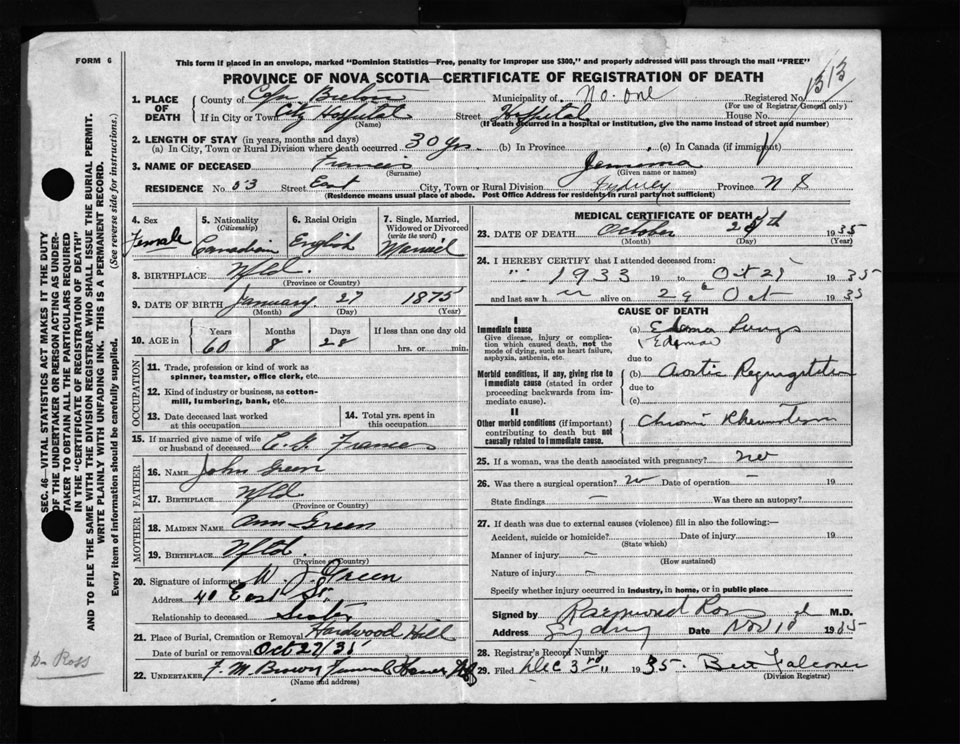 FORM 6
This form if placed in an envelope, marked "Dominion Statistics—Free, penalty for improper use $300," and properly addressed will pass through the mail "FREE"
PROVINCE OF NOVA SCOTIA—CERTIFICATE OF REGISTRATION OF DEATH
1313
1. PLACE OF DEATH
County of Cape Breton Municipality of No. one Registered No.
(For use of Registrar General only)
If in City or Town City Hospital Street Hospital House No.
(Name) (If death occurred in a hospital or institution, give the name instead of street and number)
2. LENGTH OF STAY (in years, months and days)
(a) In City, Town or Rural Division where death occurred 30 yrs. (b) In Province (c) In Canada (if immigrant)
3. NAME OF DECEASED Francis Jemima
(Surname) (Given name or names)
RESIDENCE No. 53 Street East City, Town or Rural Division Sydney Province N S
(Residence means usual place of abode. Post Office Address for residents in rural parts not sufficient)
4. Sex Female
5. Nationality (Citizenship) Canadian
6. Racial Origin English
7. Single, Married, Widowed or Divorced (write the word) Married
8. BIRTHPLACE Nfld.
(Province or Country)
9. DATE OF BIRTH January 27 1875
(Month) (Day) (Year)
10. AGE in Years 60 Months 8 Days 28 If less than one day old
hrs. or min.
OCCUPATION
11. Trade, profession or kind of work as spinner, teamster, office clerk, etc.
12. Kind of industry or business, as cotton-mill, lumbering, bank, etc.
13. Date deceased last worked at this occupation
14. Total yrs. spent in this occupation
15. If married give name of wife or husband of deceased Frances
FATHER
16. NAME John Green
17. BIRTHPLACE Nfld
(Province or Country)
MOTHER
18. MAIDEN NAME Ann Green
19. BIRTHPLACE Nfld.
(Province or Country)
20. Signature of informant W. J. Green
Address 40 East St.
Relationship to deceased Sister
21. Place of Burial, Cremation or Removal Hardwood Hill
Date of burial or removal Oct 27/35
22. UNDERTAKER F. M. Brown Funeral Home
(Name and address)
MEDICAL CERTIFICATE OF DEATH
23. DATE OF DEATH October 1935
(Month) (Day) (Year)
24. I HEREBY CERTIFY that I attended deceased from:
1933 19 to Oct 1935
and last saw h er alive on Oct 1935
CAUSE OF DEATH
I
Immediate cause
Give disease, injury or complication which caused death, not the mode of dying, such as heart failure, asphyxia, asthenia, etc.
(a) Edema Lungs
(Edema)
due to
Morbid conditions, if any, giving rise to immediate cause (stated in order proceeding backwards from immediate cause).
(b) Aortic Regurgitation
due to
(c)
II
Other morbid conditions (if important) contributing to death but not causally related to immediate cause.
Chronic Rheumatism
25. If a woman, was the death associated with pregnancy? no
26. Was there a surgical operation? no Date of operation – 19
State findings – Was there an autopsy?
27. If death was due to external causes (violence) fill in also the following:—
Accident, suicide or homicide? Date of injury 19
(State which)
Manner of injury –
(How sustained)
Nature of injury –
Specify whether injury occurred in industry, in home, or in public place
Signed by Raymond Ross M.D.
Address Sydney Date Nov 10 1935
28. Registrar's Record Number
29. Filed Dec 3rd 1935 Bert Falconer
(Division Registrar)
SEC. 46—VITAL STATISTICS ACT MAKES IT THE DUTY OF THE UNDERTAKER OR PERSON ACTING AS UNDERTAKER TO OBTAIN ALL THE PARTICULARS REQUIRED IN THE "CERTIFICATE OF REGISTRATION OF DEATH" AND TO FILE THE SAME WITH THE DIVISION REGISTRAR WHO SHALL ISSUE THE BURIAL PERMIT.
WRITE PLAINLY WITH UNFADING INK. THIS IS A PERMANENT RECORD.
Every item of information should be carefully supplied. (See reverse side for instructions.)
Dr Ross